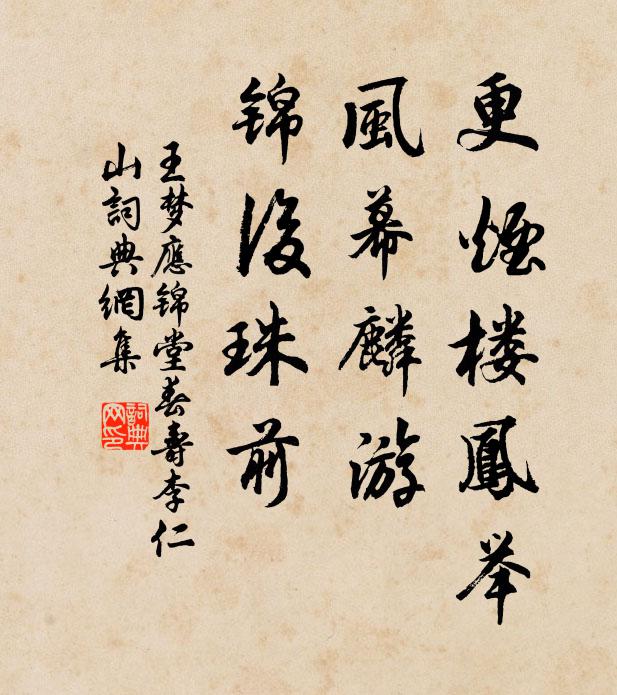 更煙楼鳳举
風幕麟游
锦後珠前
王梦應锦堂春壽李仁
山詞典網集
詞典
网印